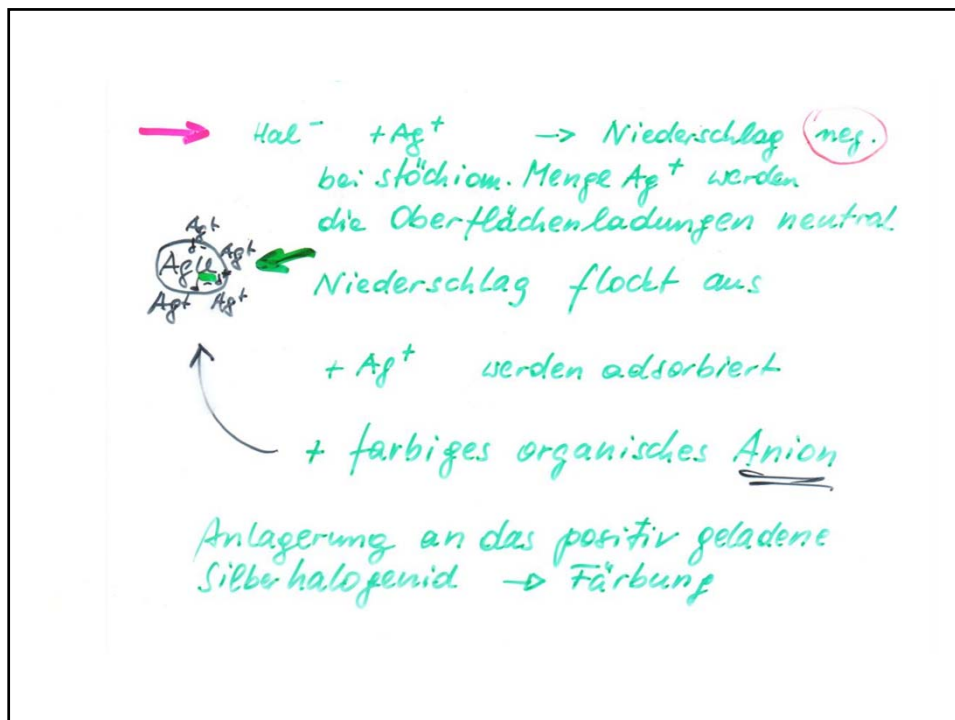 Hal⁻ + Ag⁺ → Niederschlag neg.
bei stöchiom. Menge Ag⁺ werden
die Oberflächenladungen neutral
Ag+
Ag+
Ag+ Ag+
Niederschlag flockt aus
+ Ag⁺ werden adsorbiert
+ farbiges organisches Anion
Anlagerung an das positiv geladene
Silberhalogenid → Färbung